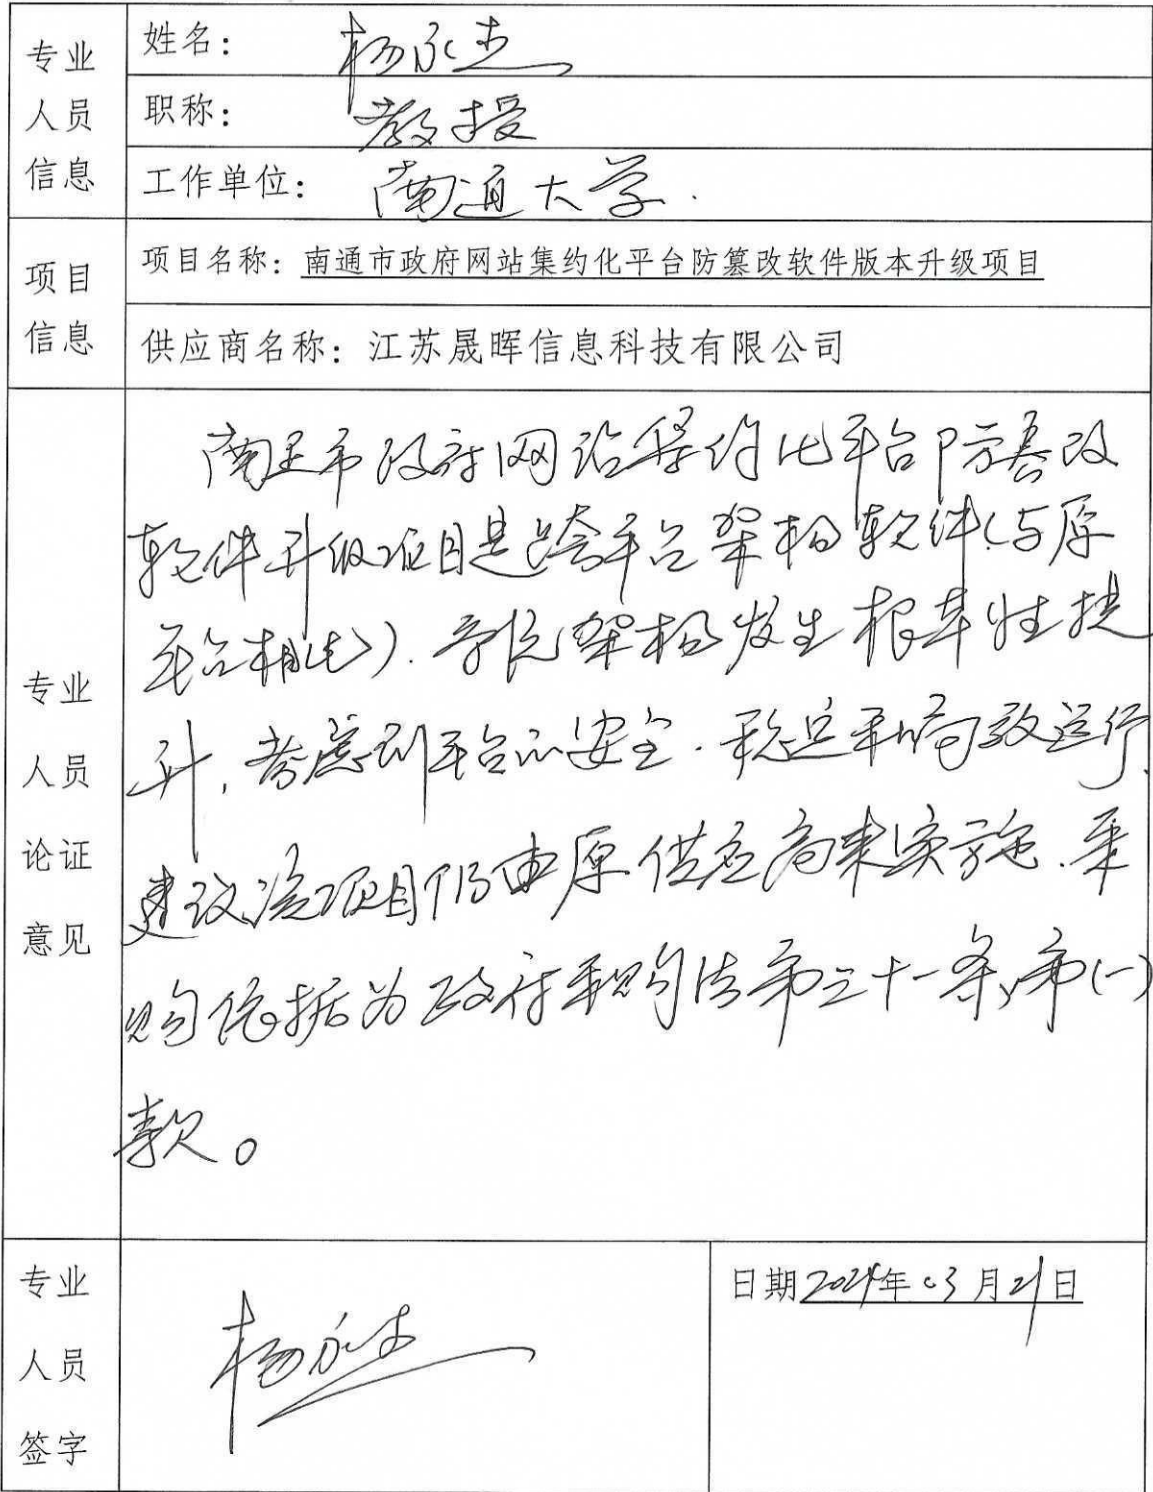 专业人员信息
姓名：杨永杰
职称：教授
工作单位：南通大学.
项目信息
项目名称：南通市政府网站集约化平台防篡改软件版本升级项目
供应商名称：江苏晟晖信息科技有限公司
专业人员论证意见
南通市政府网站集约化平台防篡改
软件升级项目是跨平台架构软件(与原
平台相比). 架构发生根本性提
升, 考虑到平台的安全.稳定和高效运行,
建议该项目仍由原供应商来实施.采
购依据为政府采购法第三十一条,第(一)
款。
专业人员签字
杨永杰
日期2024年03月21日